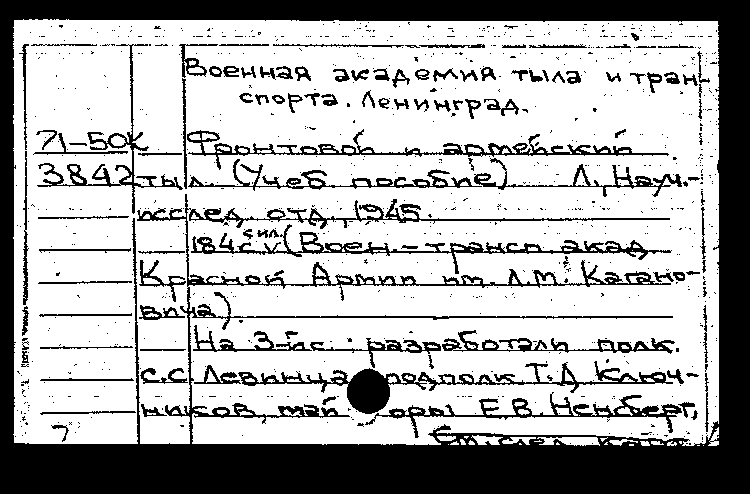 Военная академия тыла и тран-
спорта. Ленинград.
71-50К Фронтовой и армейский
3842 тыл. (Учеб. пособие) Л., Науч.-
исслед. отд., 1945.
184 с. с ил. (Воен.-трансп. акад
Красной Армии им. Л.М. Кагано-
вича).
На 3-й с.: разработали полк.
С.С. Левинца подполк Т.Д. Ключ-
ников, май оры Е.В.
7 См. след. карт